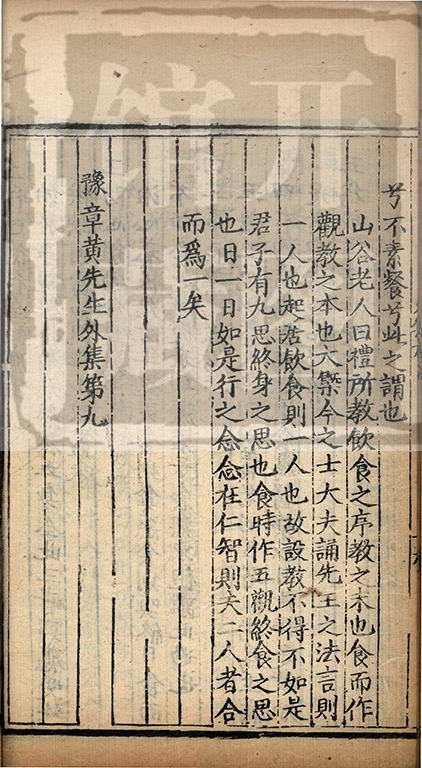 兮不素餐兮此之謂也
山谷老人曰禮所教飲食之序教之末也食而作
觀教之本也大槩今之士大夫誦先王之法言則
一人也起居飲食則一人也故設教不得不如是
君子有九思終身之思也食時作五觀終食之思
也日一日如是行之念念在仁智則夫二人者合
而爲一矣
豫章黃先生外集第九